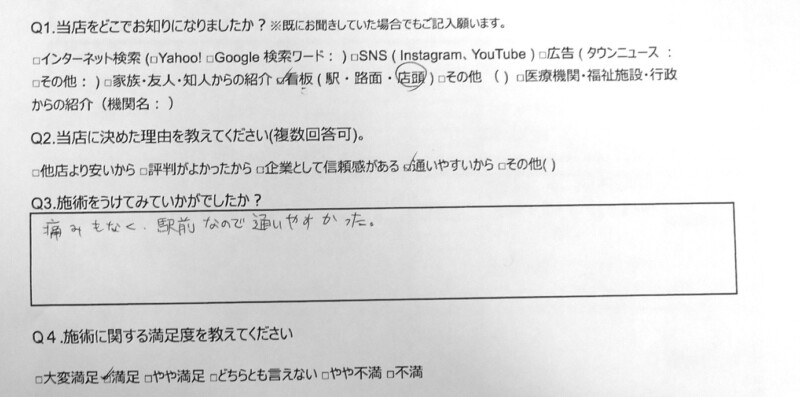 Q1.当店をどこでお知りになりましたか？※既にお聞きしていた場合でもご記入願います。
□インターネット検索 (□Yahoo! □Google 検索ワード： ) □SNS ( Instagram、YouTube ) □広告 ( タウンニュース ：
□その他： ) □家族・友人・知人からの紹介 ☑看板 ( 駅・路面・店頭 ) □その他 （ ) □医療機関・福祉施設・行政
からの紹介（機関名： ）
Q2.当店に決めた理由を教えてください(複数回答可)。
□他店より安いから □評判がよかったから □企業として信頼感がある ☑通いやすいから □その他( )
Q3.施術をうけてみていかがでしたか？
痛みもなく、駅前なので通いやすかった。
Q４.施術に関する満足度を教えてください
□大変満足 ☑満足 □やや満足 □どちらとも言えない □やや不満 □不満